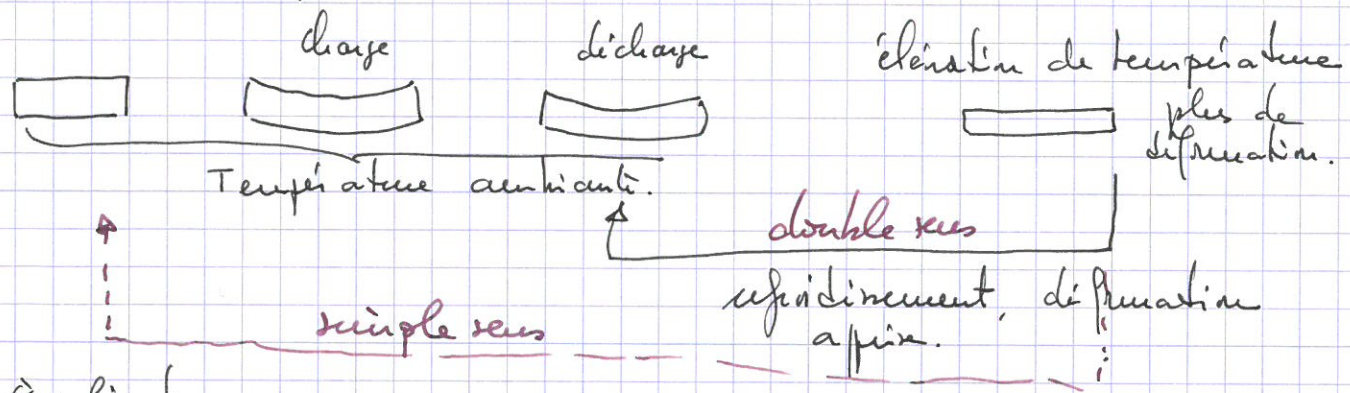 charge décharge élévation de température
plus de
déformation.
Température ambiante.
double sens
refroidissement, déformation
apprise.
simple sens